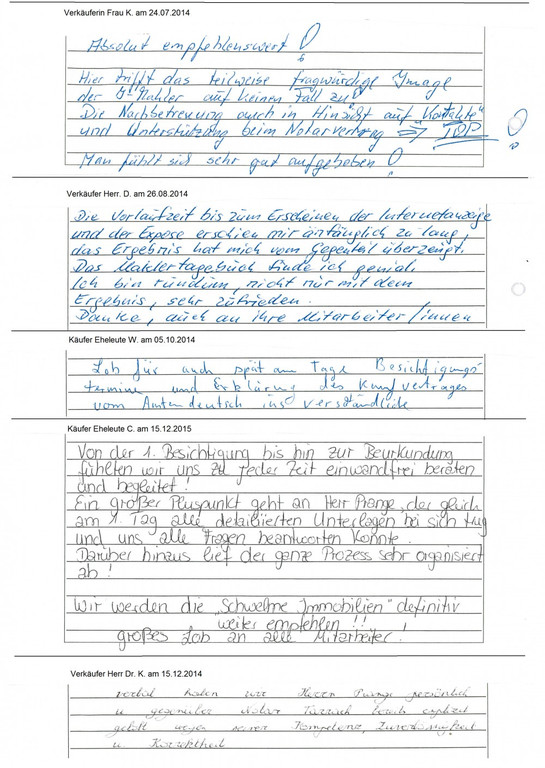 Verkäuferin Frau K. am 24.07.2014
Absolut empfehlenswert!
Hier trifft das teilweise fragwürdige Image
der I-Makler auf keinen Fall zu!
Die Nachbetreuung auch in Hinsicht auf "Kontakte"
und Unterstützung beim Notarvertrag => TOP!
Man fühlt sich sehr gut aufgehoben!
Verkäufer Herr. D. am 26.08.2014
Die Vorlaufzeit bis zum Erscheinen der Internetanzeige
und der Expose erschien mir anfänglich zu lang,
das Ergebnis hat mich vom Gegenteil überzeugt.
Das Maklertagebuch finde ich genial.
Ich bin rundum, nicht nur mit dem
Ergebnis, sehr zufrieden.
Danke, auch an ihre Mitarbeiter/innen
Käufer Eheleute W. am 05.10.2014
Lob für auch spät am Tage Besichtigungs-
termine und Erklärung des Kaufvertrages
vom Amtendeutsch ins verständliche
Käufer Eheleute C. am 15.12.2015
Von der 1. Besichtigung bis hin zur Beurkundung
fühlten wir uns zu jeder Zeit einwandfrei beraten
und begleitet!
Ein großer Pluspunkt geht an Herr Prange, der gleich
am 1. Tag alle detailiierten Unterlagen bei sich trug
und uns alle Fragen beantworten konnte.
Darüber hinaus lief der ganze Prozess sehr organisiert
ab!
Wir werden die "Schwelme Immobilien" definitiv
weiter empfehlen!!
großes Lob an alle Mitarbeiter!
Verkäufer Herr Dr. K. am 15.12.2014
verbal haben wir Herrn Prange persönlich
u. gegenüber Notar bereits explizit
gelobt wegen seiner Kompetenz, Zuverlässigkeit
u. Korrektheit